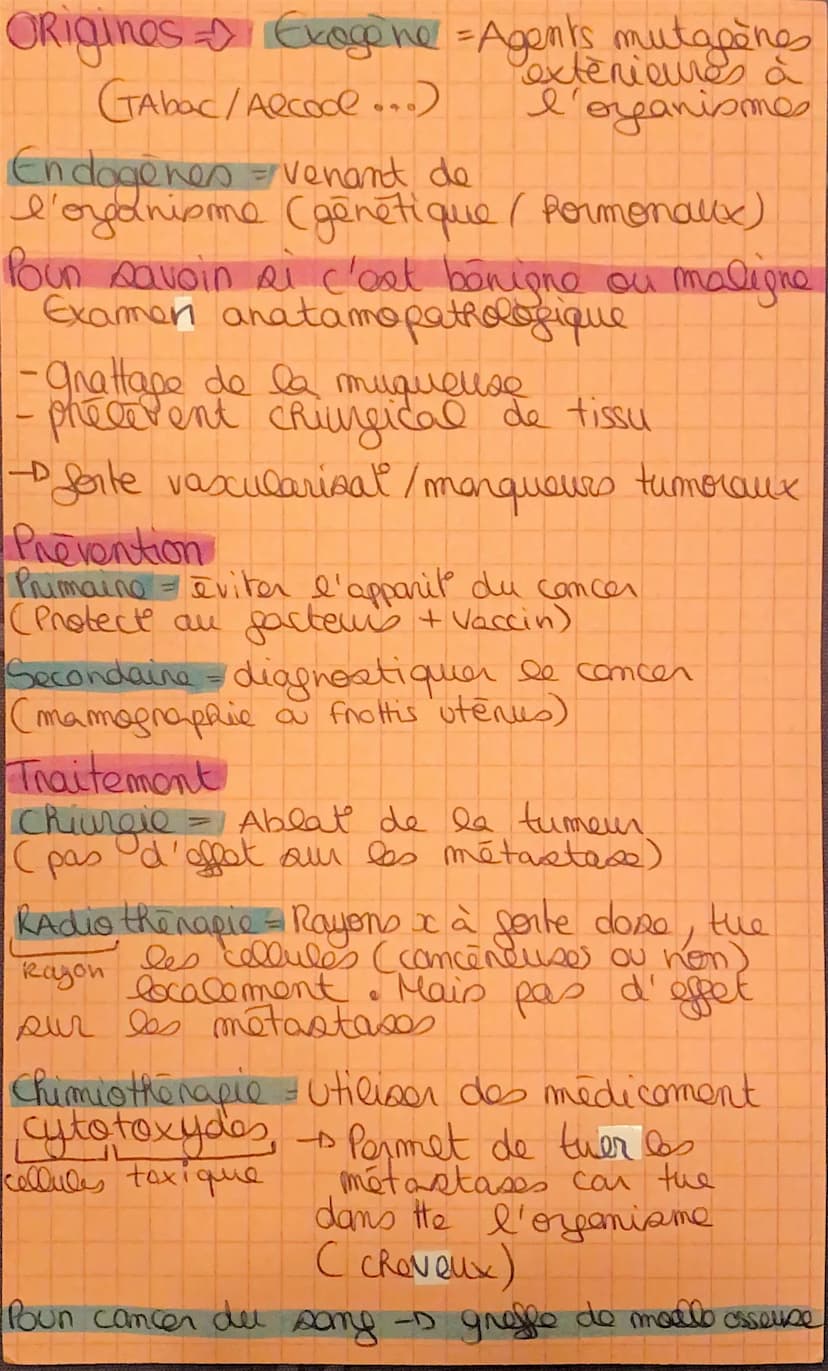 ORigines => Exogène = Agents mutagènes
extérieures à
(TAbac/Alcool ...) l'organismes
Endogènes = venant de
l'organisme (génétique / hormonaux)
Pour savoir si c'est bénigne ou maligne
Examen anatamopathologique
- grattage de la muqueuse
- prélèvent chiurgical de tissu
→ forte vascularisat° / marqueurs tumoraux
Prévention
Primaire = éviter l'apparit° du cancer
(Protect° au facteurs + Vaccin)
Secondaire = diagnostiquer le cancer
(mamographie ou frottis utérus)
Traitement
Chiurgie = Ablat° de la tumeur
(pas d'effet sur les métastase)
RAdiothérapie = Rayons x à forte dose, tue
Rayon les cellules (cancéreuses ou non)
localement. Mais pas d'effet
sur les métastases
Chimiothérapie = Utiliser des médicament
cytotoxydes → Permet de tuer les
cellules toxique métastases car tue
dans tte l'organisme
(cheveux)
Pour cancer du sang → greffe de moelle osseuse